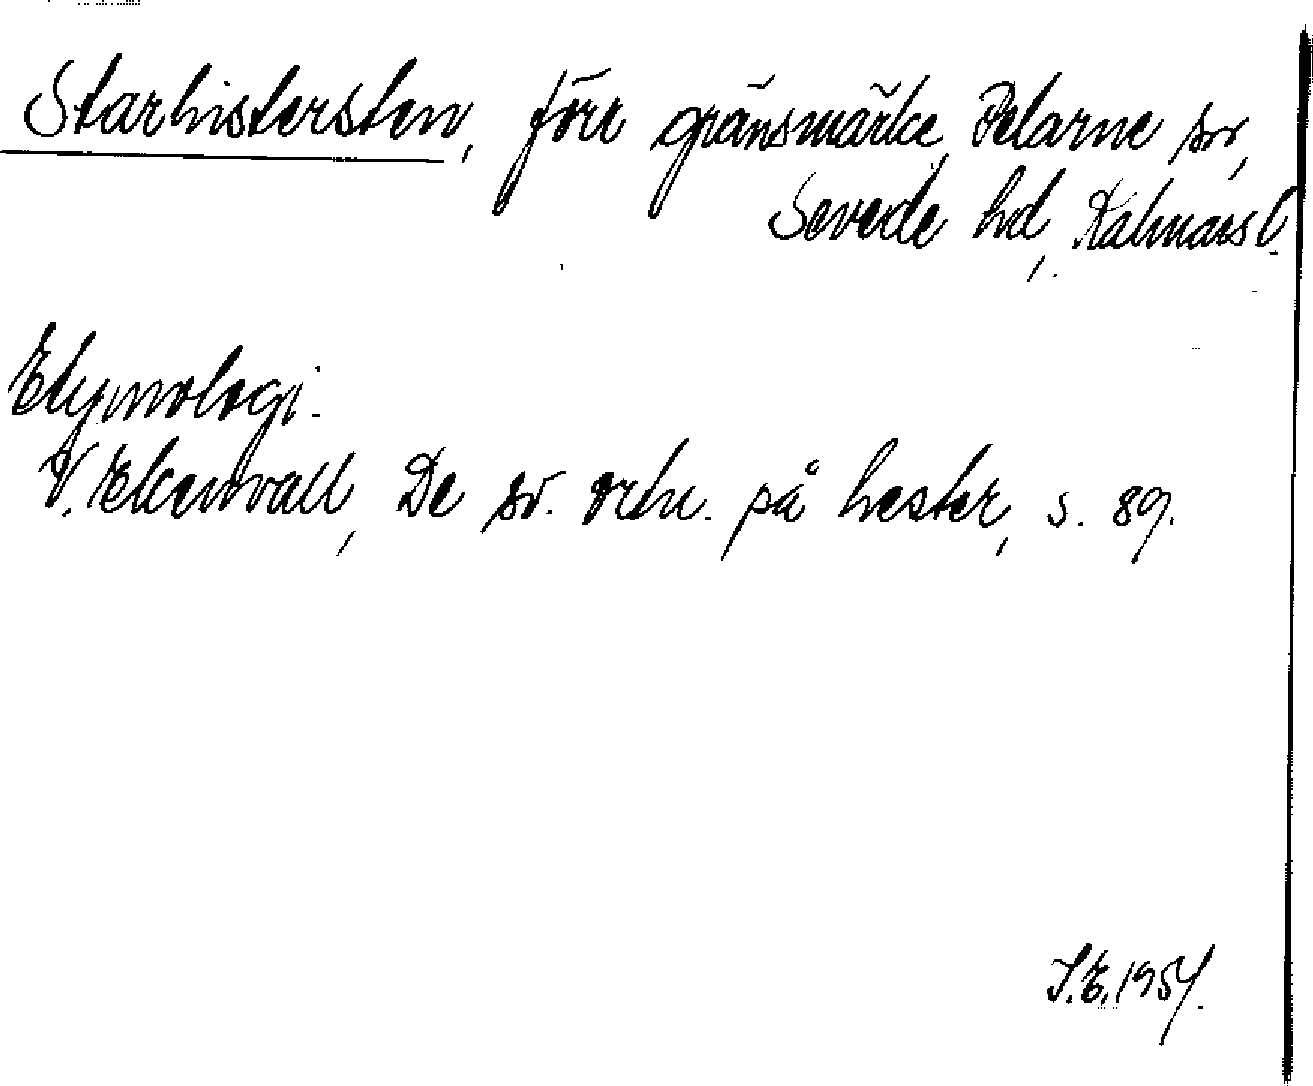 Starhistersten, förr gränsmärke, Pelarne sn,
Sevede hd, Kalmar l.
Etymologi.
V. Ekenvall, De sv. ortn. på hester, s. 89.
S.E. 1954.